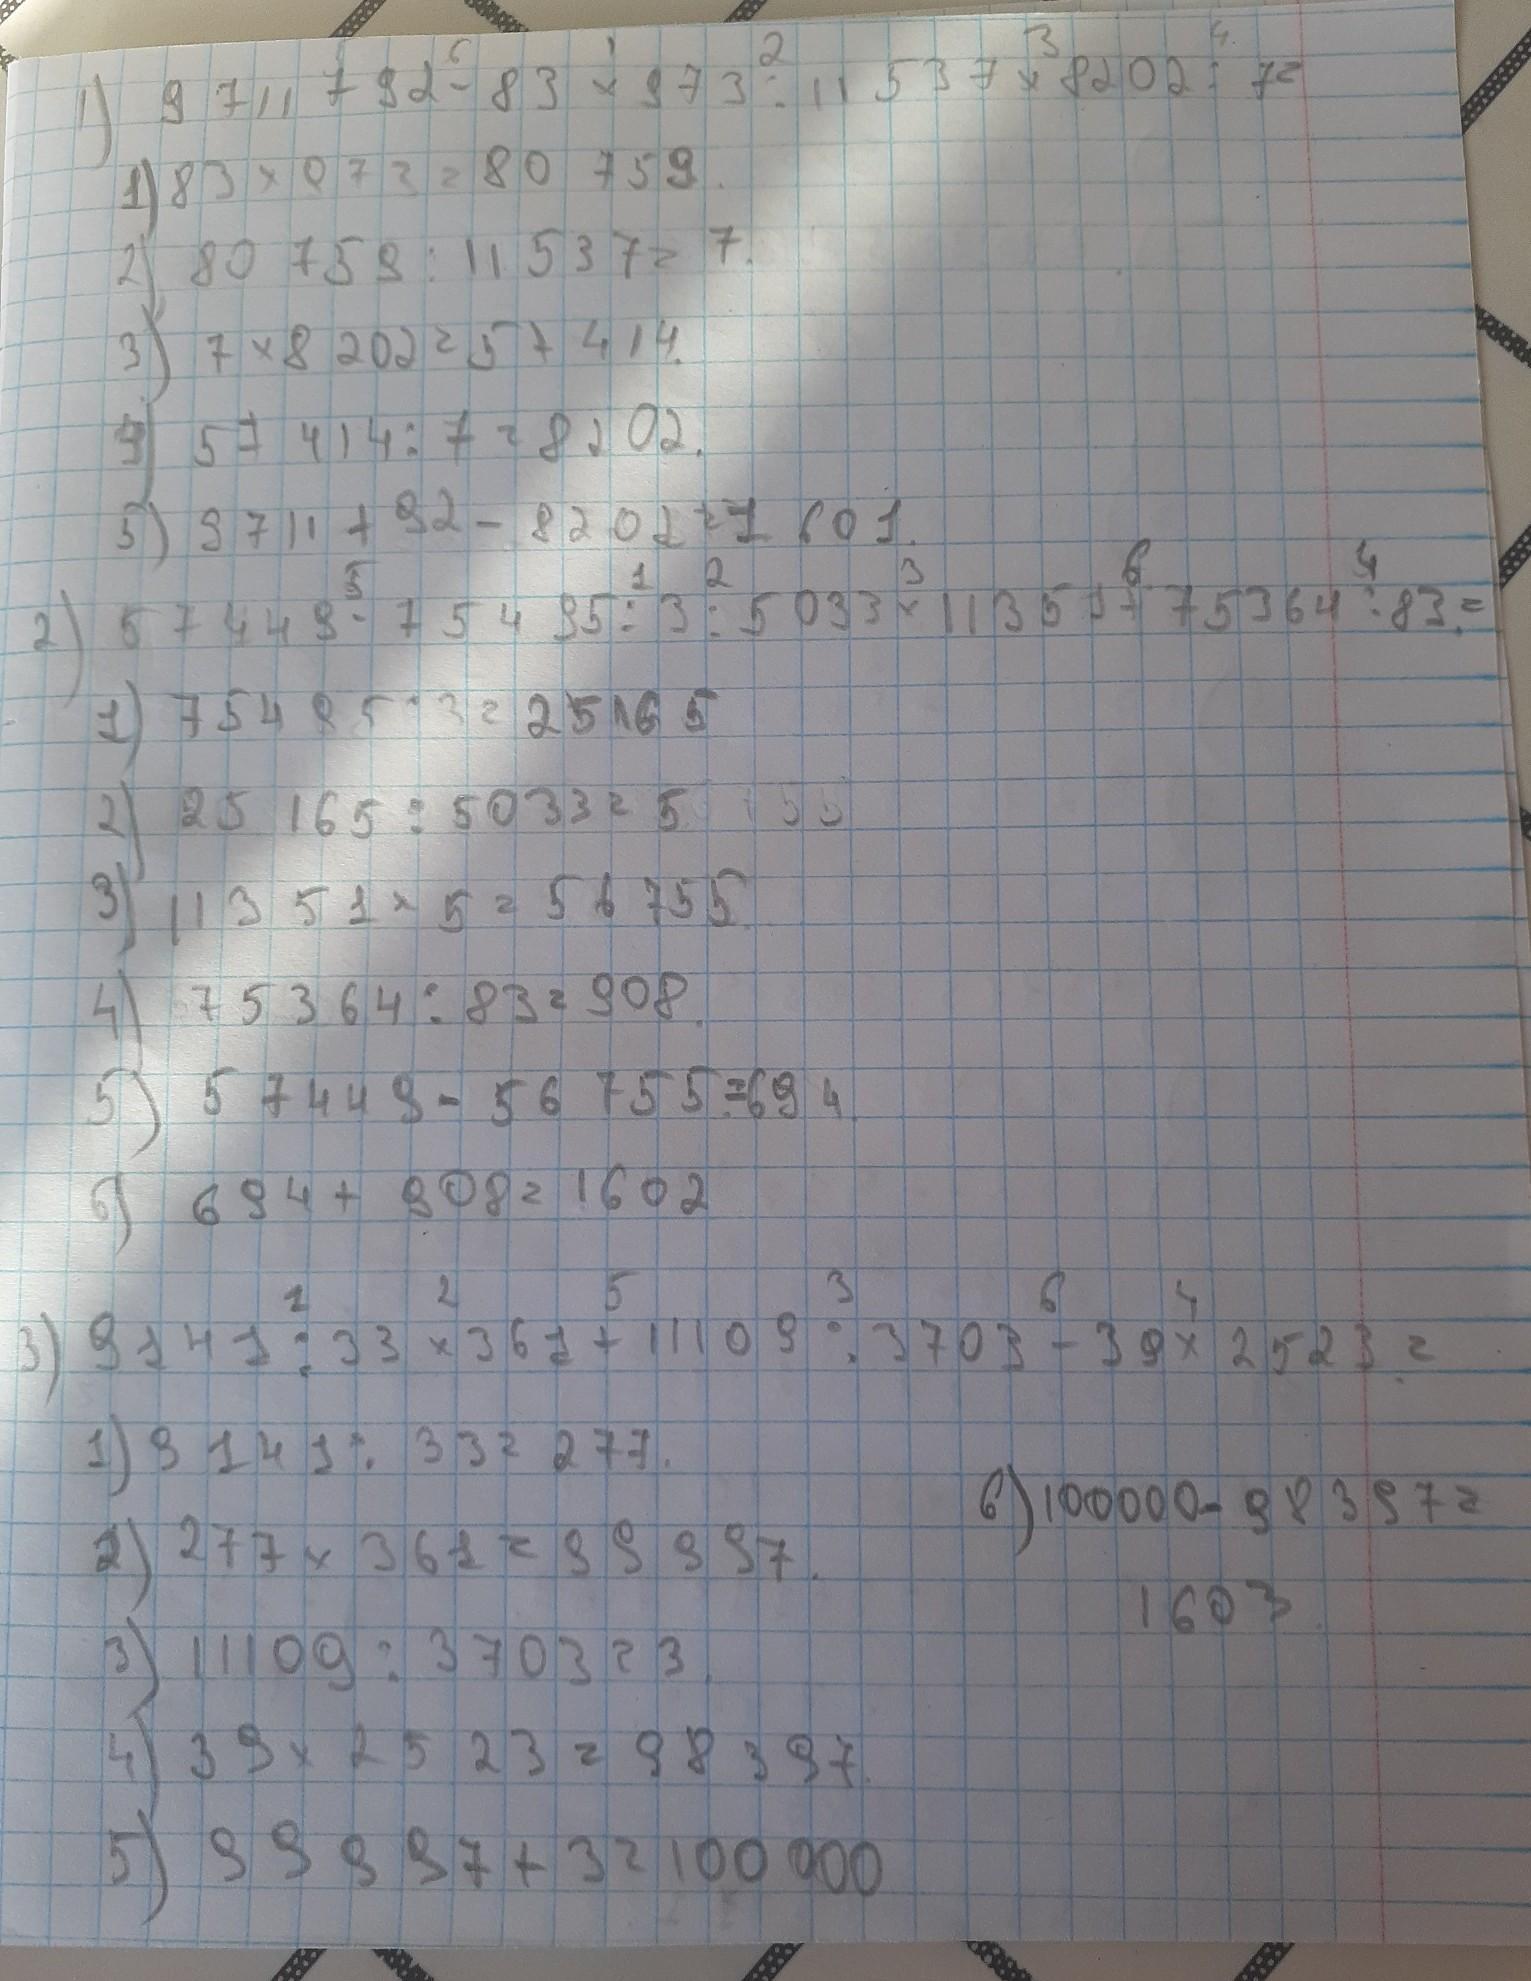 6 1 2 3 4
1) 9711 + 92 - 83 × 973 : 11537 × 8202 : 7 =
1) 83 × 973 = 80 759.
2) 80 759 : 11 537 = 7.
3) 7 × 8 202 = 57 414.
4) 57 414 : 7 = 8202.
5) 9711 + 92 - 8202 = 1 601.
5 1 2 3 6 4
2) 57449 - 75495 : 3 : 5033 × 11351 + 75364 : 83 =
1) 75495 : 3 = 25165
2) 25 165 : 5033 = 5
3) 11351 × 5 = 56 755
4) 75364 : 83 = 908.
5) 57449 - 56 755 = 694.
6) 694 + 908 = 1602
1 2 5 3 6 4
3) 9141 : 33 × 361 + 11109 : 3703 - 39 × 2523 =
1) 9141 : 33 = 277.
2) 277 × 361 = 99 997.
3) 11109 : 3703 = 3.
4) 39 × 2523 = 98 397.
5) 99 997 + 3 = 100 000
6) 100000 - 98397 =
1603.